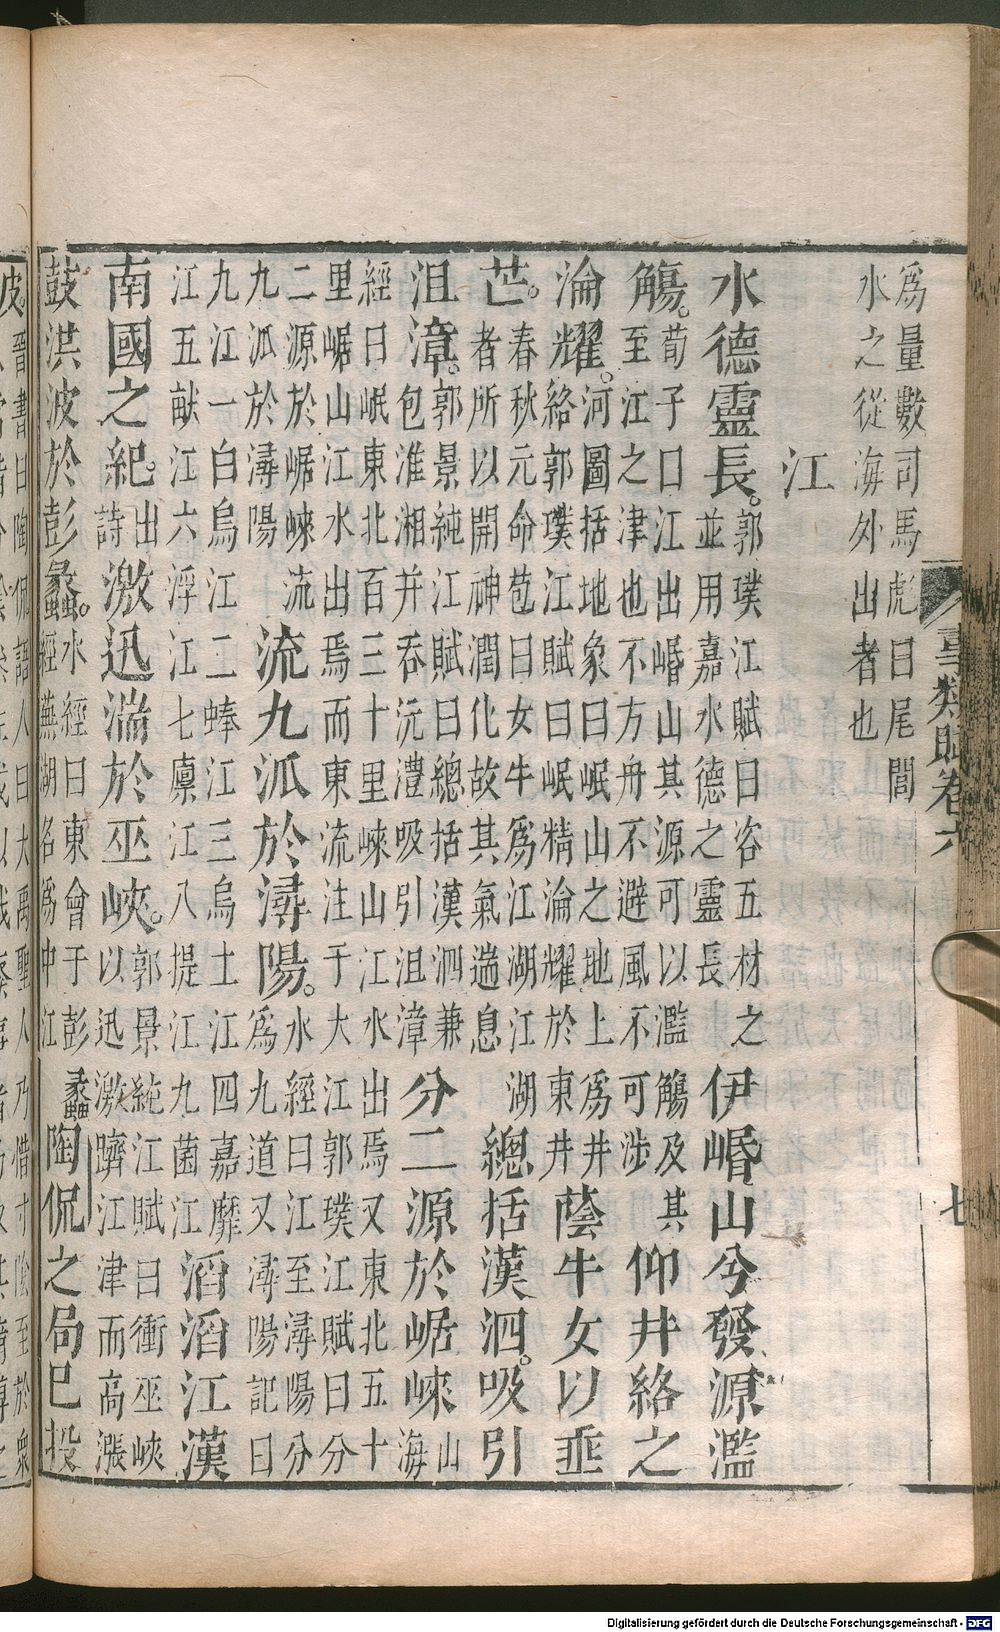 爲量數司馬彪曰尾閭
水之從海外出者也
事類賦卷六 七
江
水德靈長。郭璞江賦曰咨五材之
並用嘉水德之靈長
伊㟭山兮發源濫
觴。荀子曰江出㟭山其源可以濫觴及其
至江之津也不方舟不避風不可涉
仰井絡之
淪耀。河圖括地象曰岷山之地上爲井
絡郭璞江賦曰岷精淪耀於東井
蔭牛女以垂
芒。春秋元命苞曰女牛爲江湖江湖
者所以開神潤化故其氣遄息
總括漢泗。吸引
沮漳。郭景純江賦曰總括漢泗兼
包淮湘并吞沅澧吸引沮漳
分二源於崌崍山
海
經曰岷東北百三十里崍山江水出焉又東北五十
里崌山江水出焉而東流注于大江郭璞江賦曰分
二源於崌崍流
九派於潯陽
流九派於潯陽。水經曰江至潯陽分
爲九道又潯陽記曰
九江一白烏江二蜯江三烏土江四嘉靡
江五畎江六浮江七廩江八提江九菌江
滔滔江漢
南國之紀。出
詩
激迅湍於巫峽。郭景純江賦曰衝巫峽
以迅激躋江津而高漲
鼓洪波於彭蠡。水經曰東會于彭蠡
經蕪湖名爲中江
陶侃之局已投
波。晉書曰陶侃語人曰大禹聖人乃惜寸陰至於衆
Digitalisierung gefördert durch die Deutsche Forschungsgemeinschaft - DFG